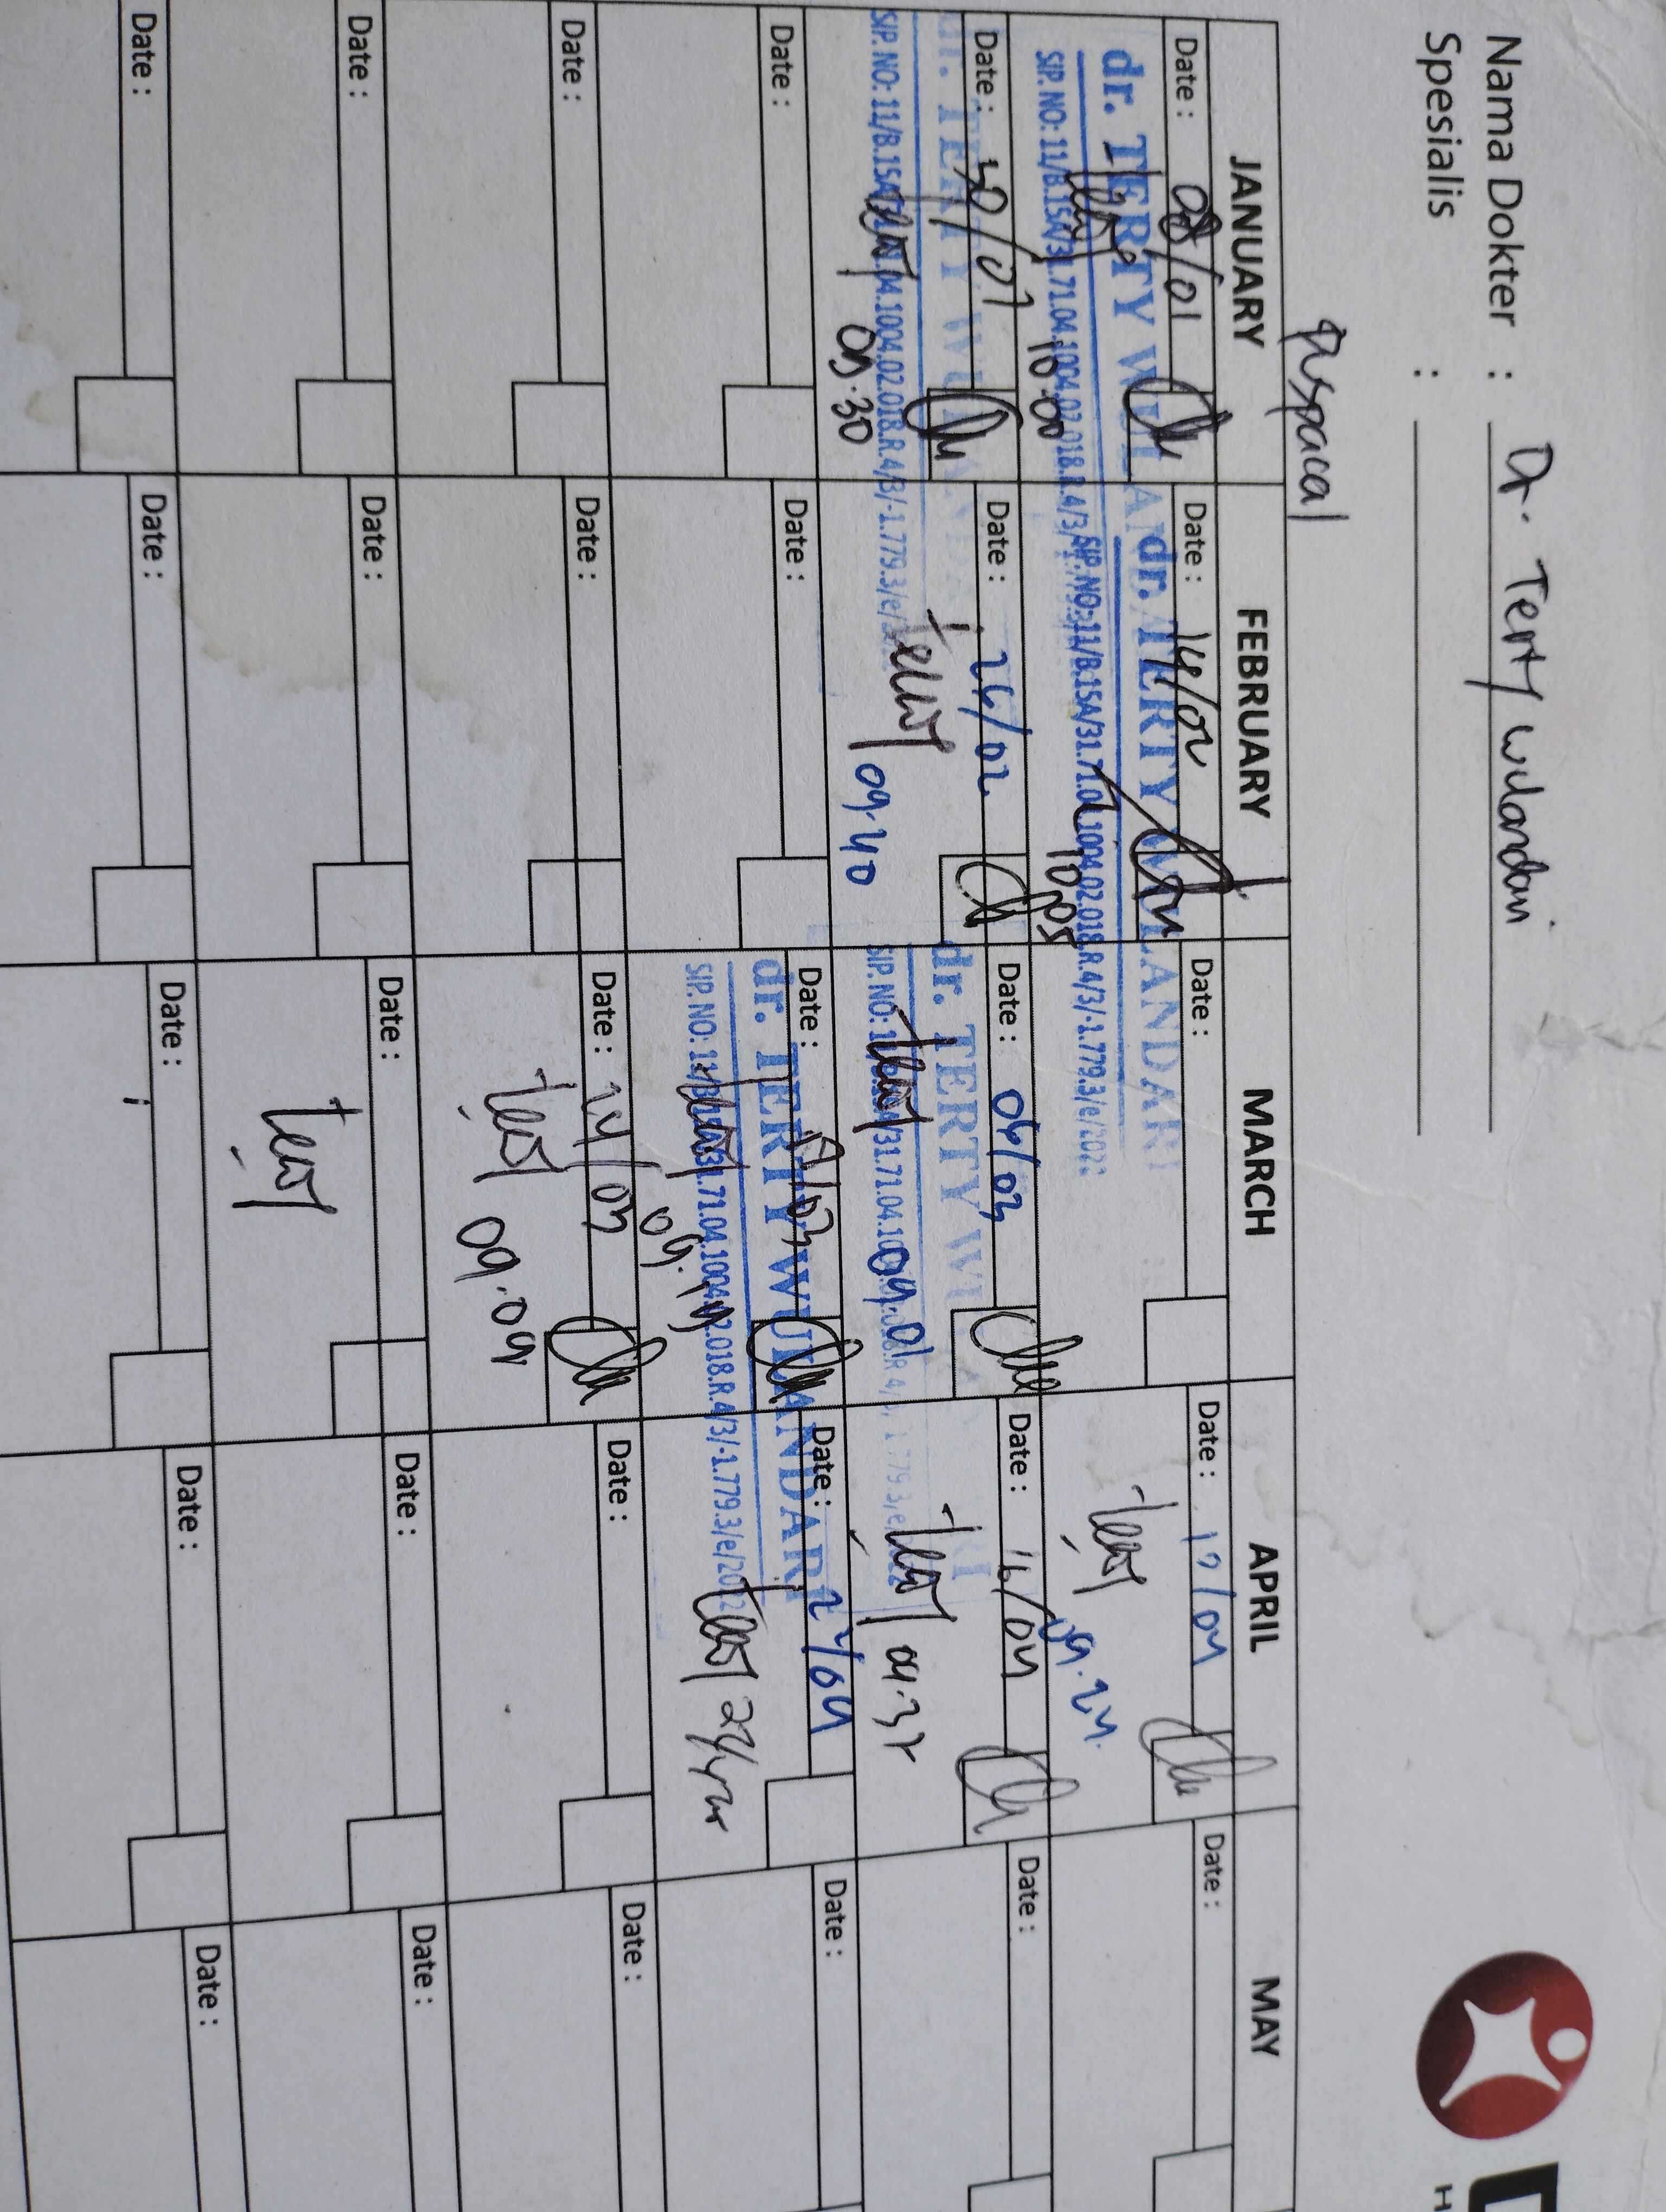 Nama Dokter : Dr. Terty Wulandari
Spesialis :
JANUARY FEBRUARY MARCH APRIL MAY
Date : 08/01
dr. TERTY WULANDARI
SIP. NO: 11/B.15A/31.71.04.1004.02.018.R.4/3/-1.779.3/e/2022
10.00
Date : 14/02
dr. TERTY WULANDARI
SIP. NO: 11/B.15A/31.71.04.1004.02.018.R.4/3/-1.779.3/e/2022
10.05
Date :
Date : 17/04
09.24.
Date :
Date : 30/01
dr. TERTY WULANDARI
SIP. NO: 11/B.15A/31.71.04.1004.02.018.R.4/3/-1.779.3/e/
09.30
Date : 26/02
09.40
Date : 06/03
dr. TERTY WULANDARI
SIP. NO: 11/B.15A/31.71.04.1004.02.018.R.4/3/-1.779.3/e/2022
09.01
Date : 16/04
09.32
Date :
Date :
Date :
Date : /03
dr. TERTY WULANDARI
SIP. NO: 11/B.15A/31.71.04.1004.02.018.R.4/3/-1.779.3/e/2022
09.19
Date : 24/04
Date :
Date :
Date :
Date : 24/03
09.09
Date :
Date :
Date :
Date :
Date :
Date :
Date :
Date :
Date :
Date :
Date :
Date :